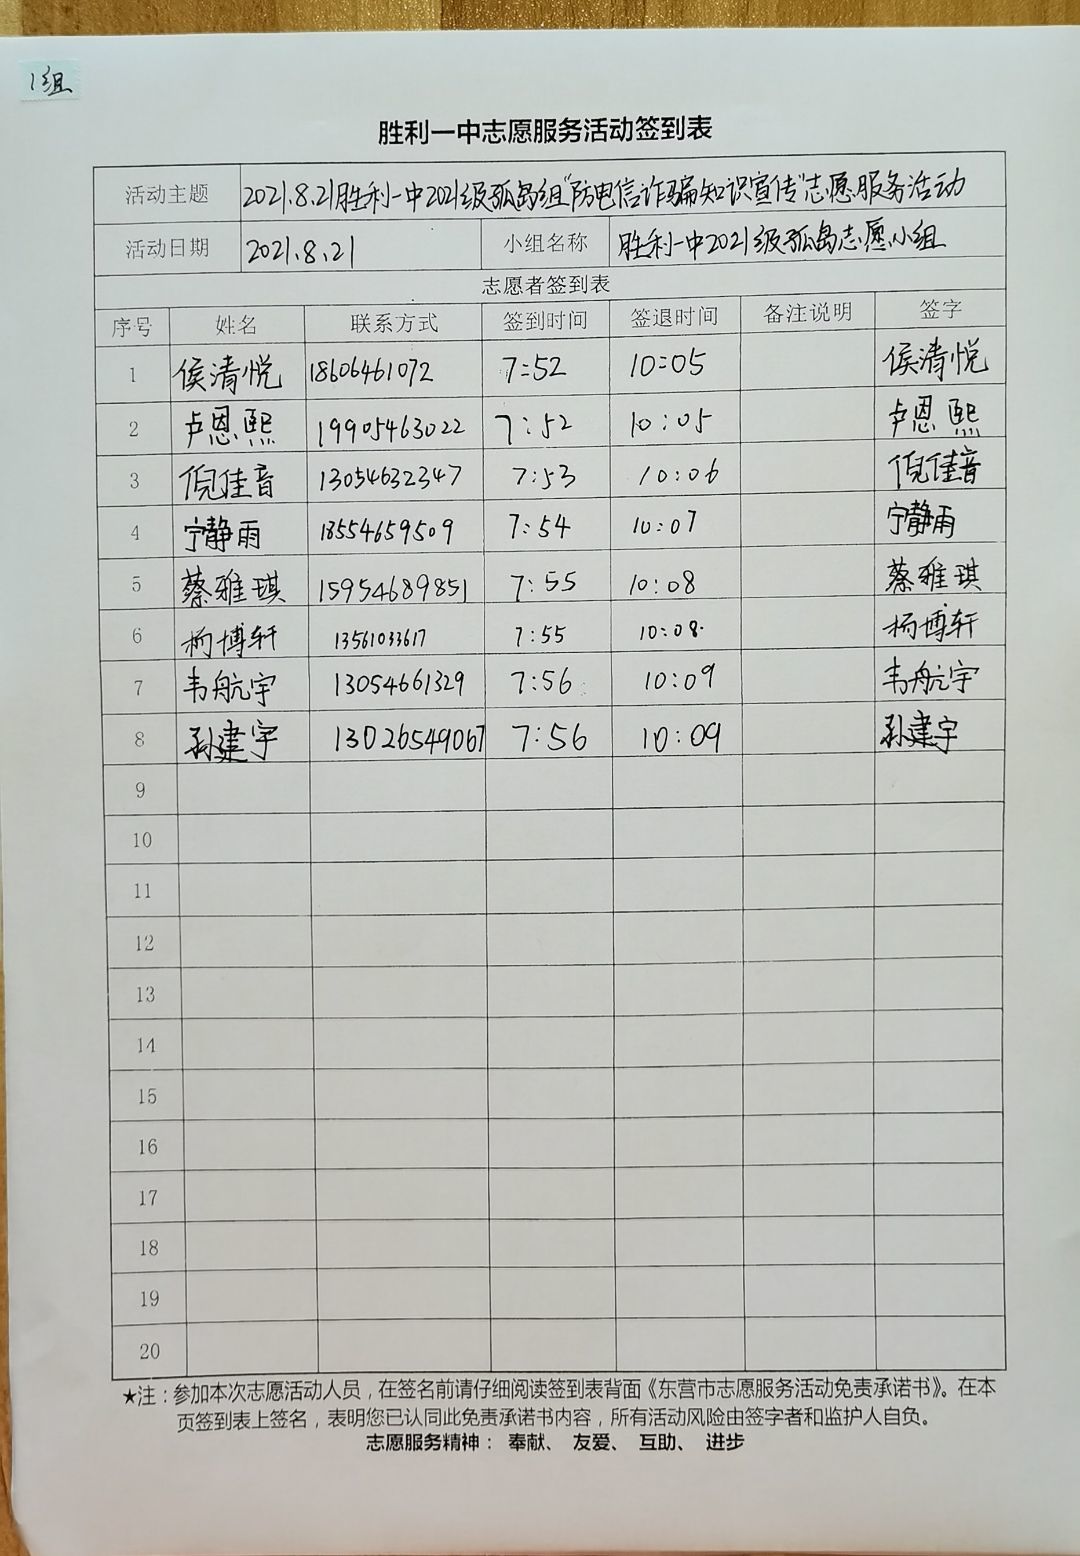 1组
胜利一中志愿服务活动签到表
活动主题 2021.8.21胜利一中2021级孤岛组“防电信诈骗知识宣传”志愿服务活动
活动日期 2021.8.21 小组名称 胜利一中2021级孤岛志愿小组
志愿者签到表
序号 姓名 联系方式 签到时间 签退时间 备注说明 签字
1 侯清悦 18606461072 7:52 10:05 侯清悦
2 卢恩熙 19905463022 7:52 10:05 卢恩熙
3 倪佳音 13054632347 7:53 10:06 倪佳音
4 宁静雨 18554659509 7:54 10:07 宁静雨
5 蔡雅琪 15954689851 7:55 10:08 蔡雅琪
6 杨博轩 13561033617 7:55 10:08 杨博轩
7 韦航宇 13054661329 7:56 10:09 韦航宇
8 孙建宇 13026549067 7:56 10:09 孙建宇
9
10
11
12
13
14
15
16
17
18
19
20
★注：参加本次志愿活动人员，在签名前请仔细阅读签到表背面《东营市志愿服务活动免责承诺书》。在本
页签到表上签名，表明您已认同此免责承诺书内容，所有活动风险由签字者和监护人自负。
志愿服务精神： 奉献、 友爱、 互助、 进步